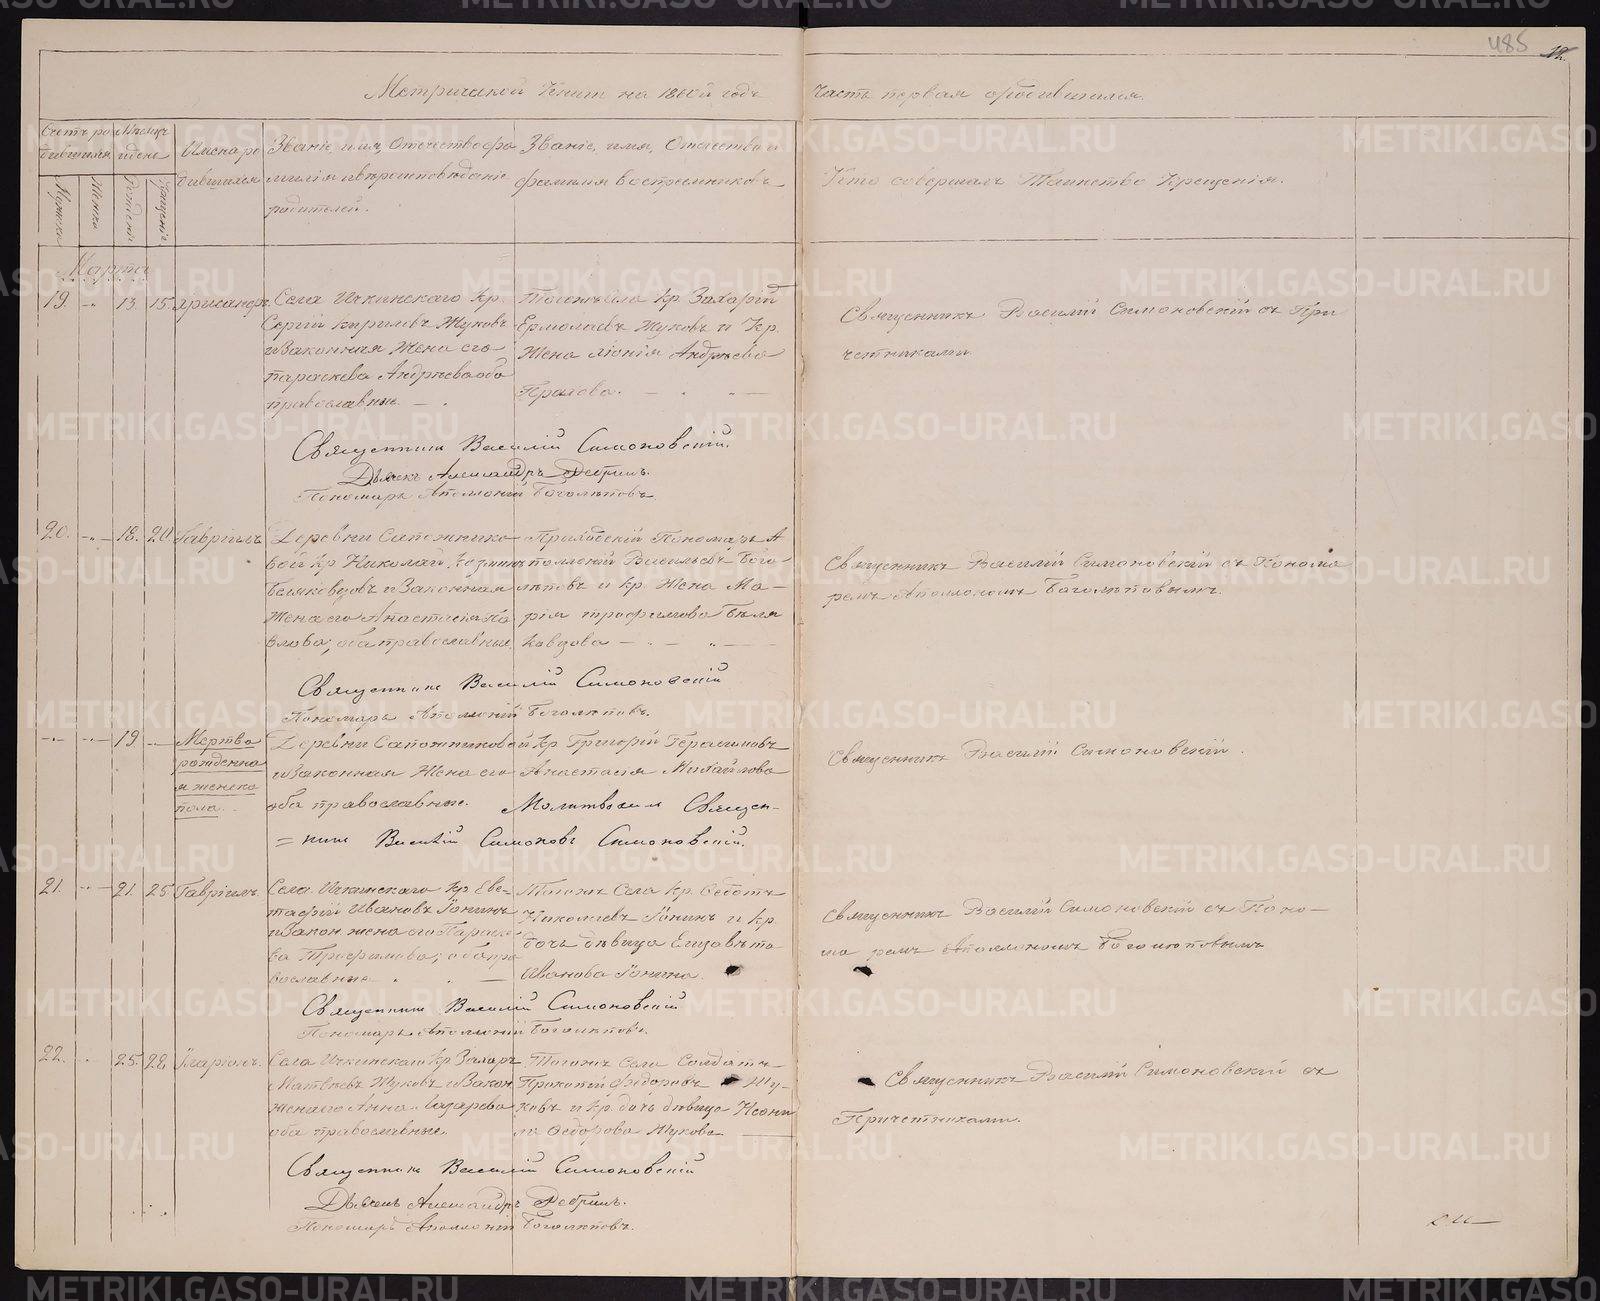 485
12.
Метрической Книги на 1860й годъ
Часть первая о родившихся.
Счетъ ро
дившихся
Мужеска
Женска
Мѣсяцъ
и день
Рожденія
Крещенія
Имена ро
дившихся
Званіе, имя, Отечество, фа
милія и вѣроисповѣданіе
родителей.
Званіе, имя, Отечество и
фамилія воспріемниковъ
Кто совершалъ Таинство Крещенія.
Марта
19. 13. 15. Хрисанфъ.
Села Ичкинскаго Кр.
Сергій Кириловъ Жуковъ
и Законная Жена его
Параскева Андреева оба
православные.
Тогожъ Села Кр. Захарій
Ермолаевъ Жуковъ и Кр.
Жена Андреева
Священникъ Василій Симоновскій съ При
четниками.
Священникъ Василій Симоновскій.
Дьячекъ Александръ
Пономарь Аполлоній Боголѣповъ.
20. 18. 20. Гавріилъ.
Деревни Сапожнико-
вой Кр. Николай
и Законная
Жена его Анастасія Па
влова; оба православные.
Приходскій Пономарь А
поллоній Васильевъ Бого-
лѣповъ и Кр. Жена Ма-
рія Трофимова Бѣля
ковцова
Священникъ Василій Симоновскій съ Понома
ремъ Аполлономъ Боголѣповымъ.
Священникъ Василій Симоновскій
Пономарь Аполлоній Боголѣповъ.
19 Мертво
рожденна
я женска
пола.
Деревни Сапожниковой Кр. Григорій Герасимовъ
и Законная Жена его Анастасія Михайлова
оба православные.
Молитвовалъ Священ-
= никъ Василій Симоновъ Симоновскій.
Священникъ Василій Симоновскій.
21. 21. 25 Гавріилъ.
Села Ичкинскаго Кр. Евс-
тафій Ивановъ Іонинъ
и Закон. жена его Параске
ва Трофимова; оба пра
вославные.
Тогожъ Села Кр. Федотъ
Николаевъ Іонинъ и Кр.
дочь дѣвица Елизавета
Иванова Іонина.
Священникъ Василій Симоновскій съ Поно-
ма ремъ Аполлономъ Боголѣповымъ
Священникъ Василій Симоновскій
Пономарь Аполлоній Боголѣповъ.
22. 25. 28. Иларіонъ.
Села Ичкинскаго Кр. Захаръ
Матвѣевъ Жуковъ и Закон
Жена его Анна Лазарева
оба православные.
Тогожъ Села Солдатъ
Прокопій Федоровъ Жу-
ковъ и Кр. дочь дѣвица Неони
ла Федорова Жукова
Священникъ Василій Симоновскій съ
Причетниками.
Священникъ Василій Симоновскій
Дьячекъ Александръ
Пономарь Аполлоній Боголѣповъ.
METRIKI.GASO-URAL.RU